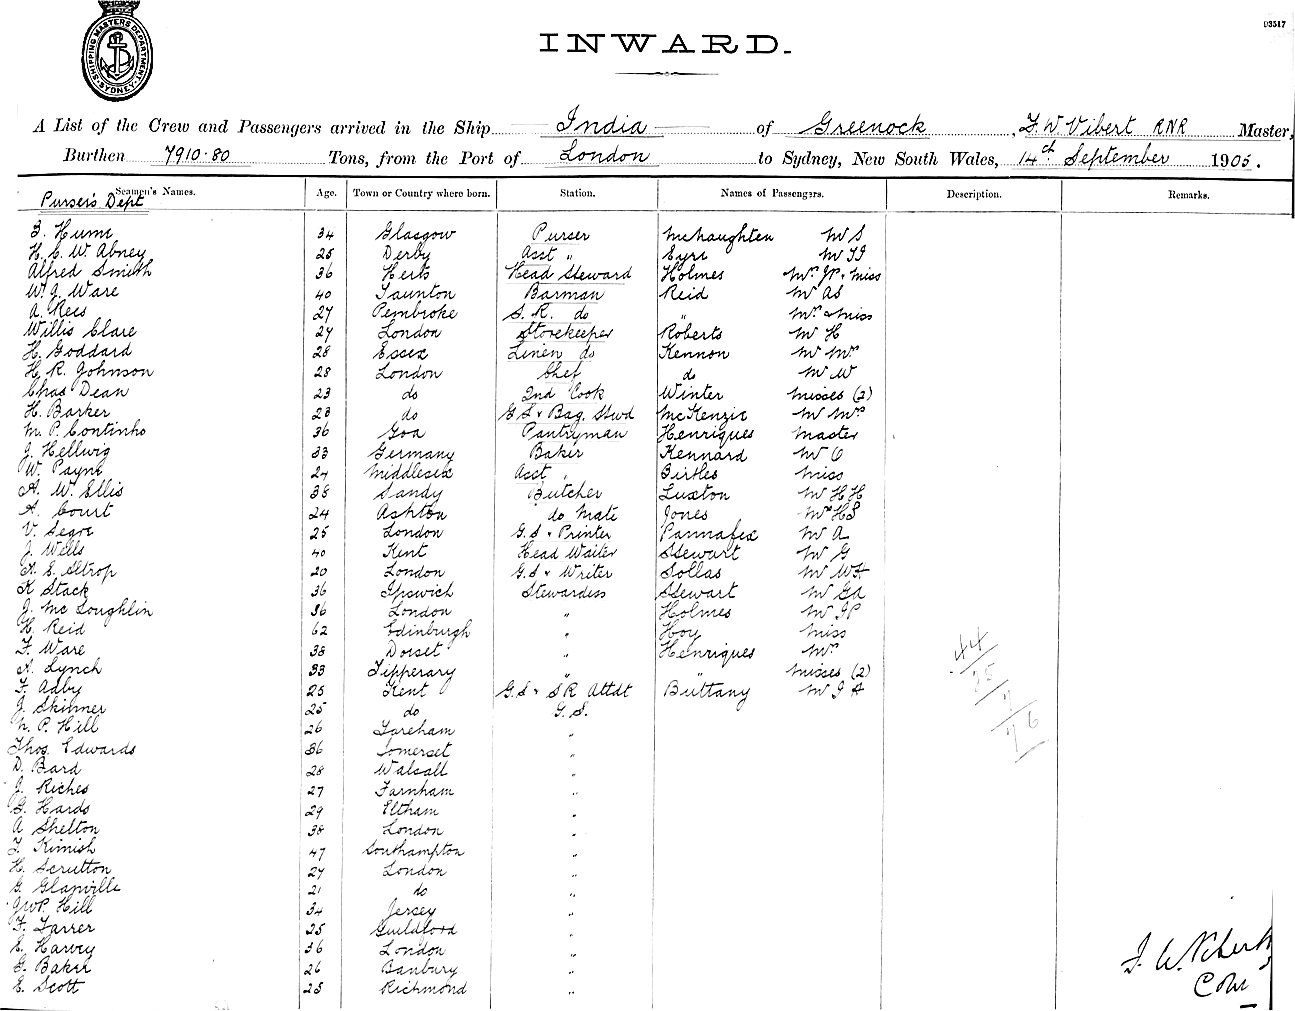 D3517
SHIPPING MASTERS DEPARTMENT SYDNEY
INWARD.
A List of the Crew and Passengers arrived in the Ship India of Greenock, F. W Vibert RNR Master,
Burthen 7910·80 Tons, from the Port of London to Sydney, New South Wales, 14th September 1905.
Seamen's Names. Age. Town or Country where born. Station. Names of Passengers. Description. Remarks.
Purser's Dept
Hume 34 Glasgow Purser McNaughten Mr S
H. C. W. Abney 25 Derby Asst " Eyre Mr
Alfred Smith 36 Herts Head Steward Holmes Mrs JP & Miss
W. J. Ware 40 Taunton Barman Reid Mr AS
A. Rees 27 Pembroke S. R. do " Mrs & Miss
Willis Clare 27 London Storekeeper Roberts Mr H
H. Goddard 28 Essex Linen do Kennon Mr Mrs
H. R. Johnson 28 London Chef do Mr W
Chas Dean 23 do 2nd Cook Winter Misses (2)
H. Barker 28 do G S & Bag. Stwd McKenzie Mr Mrs
M. P. Continho 36 Goa Pantryman Henriques Master
J. Hellwig 33 Germany Baker Kennard Mr C
W. Payne 24 Middlesex Asst " Birtles Miss
A. W. Ellis 38 Sandy Butcher Luxton Mr H H
A. Court 24 Ashton do Mate Jones Mr HS
V. Segre 25 London G. S & Printer Pannafex Mr A
J. Wells 40 Kent Head Waiter Stewart Mr G
A. E. Eltrop 20 London G. S & Writer Sollas Mr WF
K Stack 36 Ipswich Stewardess Stewart Mr GA
J. McLoughlin 36 London " Holmes Mr JP
H. Reid 62 Edinburgh " Hoy Miss
F. Ware 38 Dorset " Henriques Mrs
A. Lynch 33 Tipperary " " Misses (2)
F. Adby 25 Kent G. S & S R Attdt Brittany Mr J A
J. Skinner 25 do G. S.
W. P. Hill 26 Fareham "
Thos. Edwards 36 Somerset "
D. Bard 28 Walsall "
J. Riches 27 Farnham "
G. Hards 29 Eltham "
A Shelton 38 London "
F. Kimish 47 Southampton "
H. Scrutton 27 London "
G. Glanville 21 do "
JWP. Hill 34 Jersey "
F. Farrer 25 Guildford "
E. Harvey 36 London "
G. Baker 26 Banbury "
E. Scott 25 Richmond "
44
25
7
76
F. W. Vibert
Com